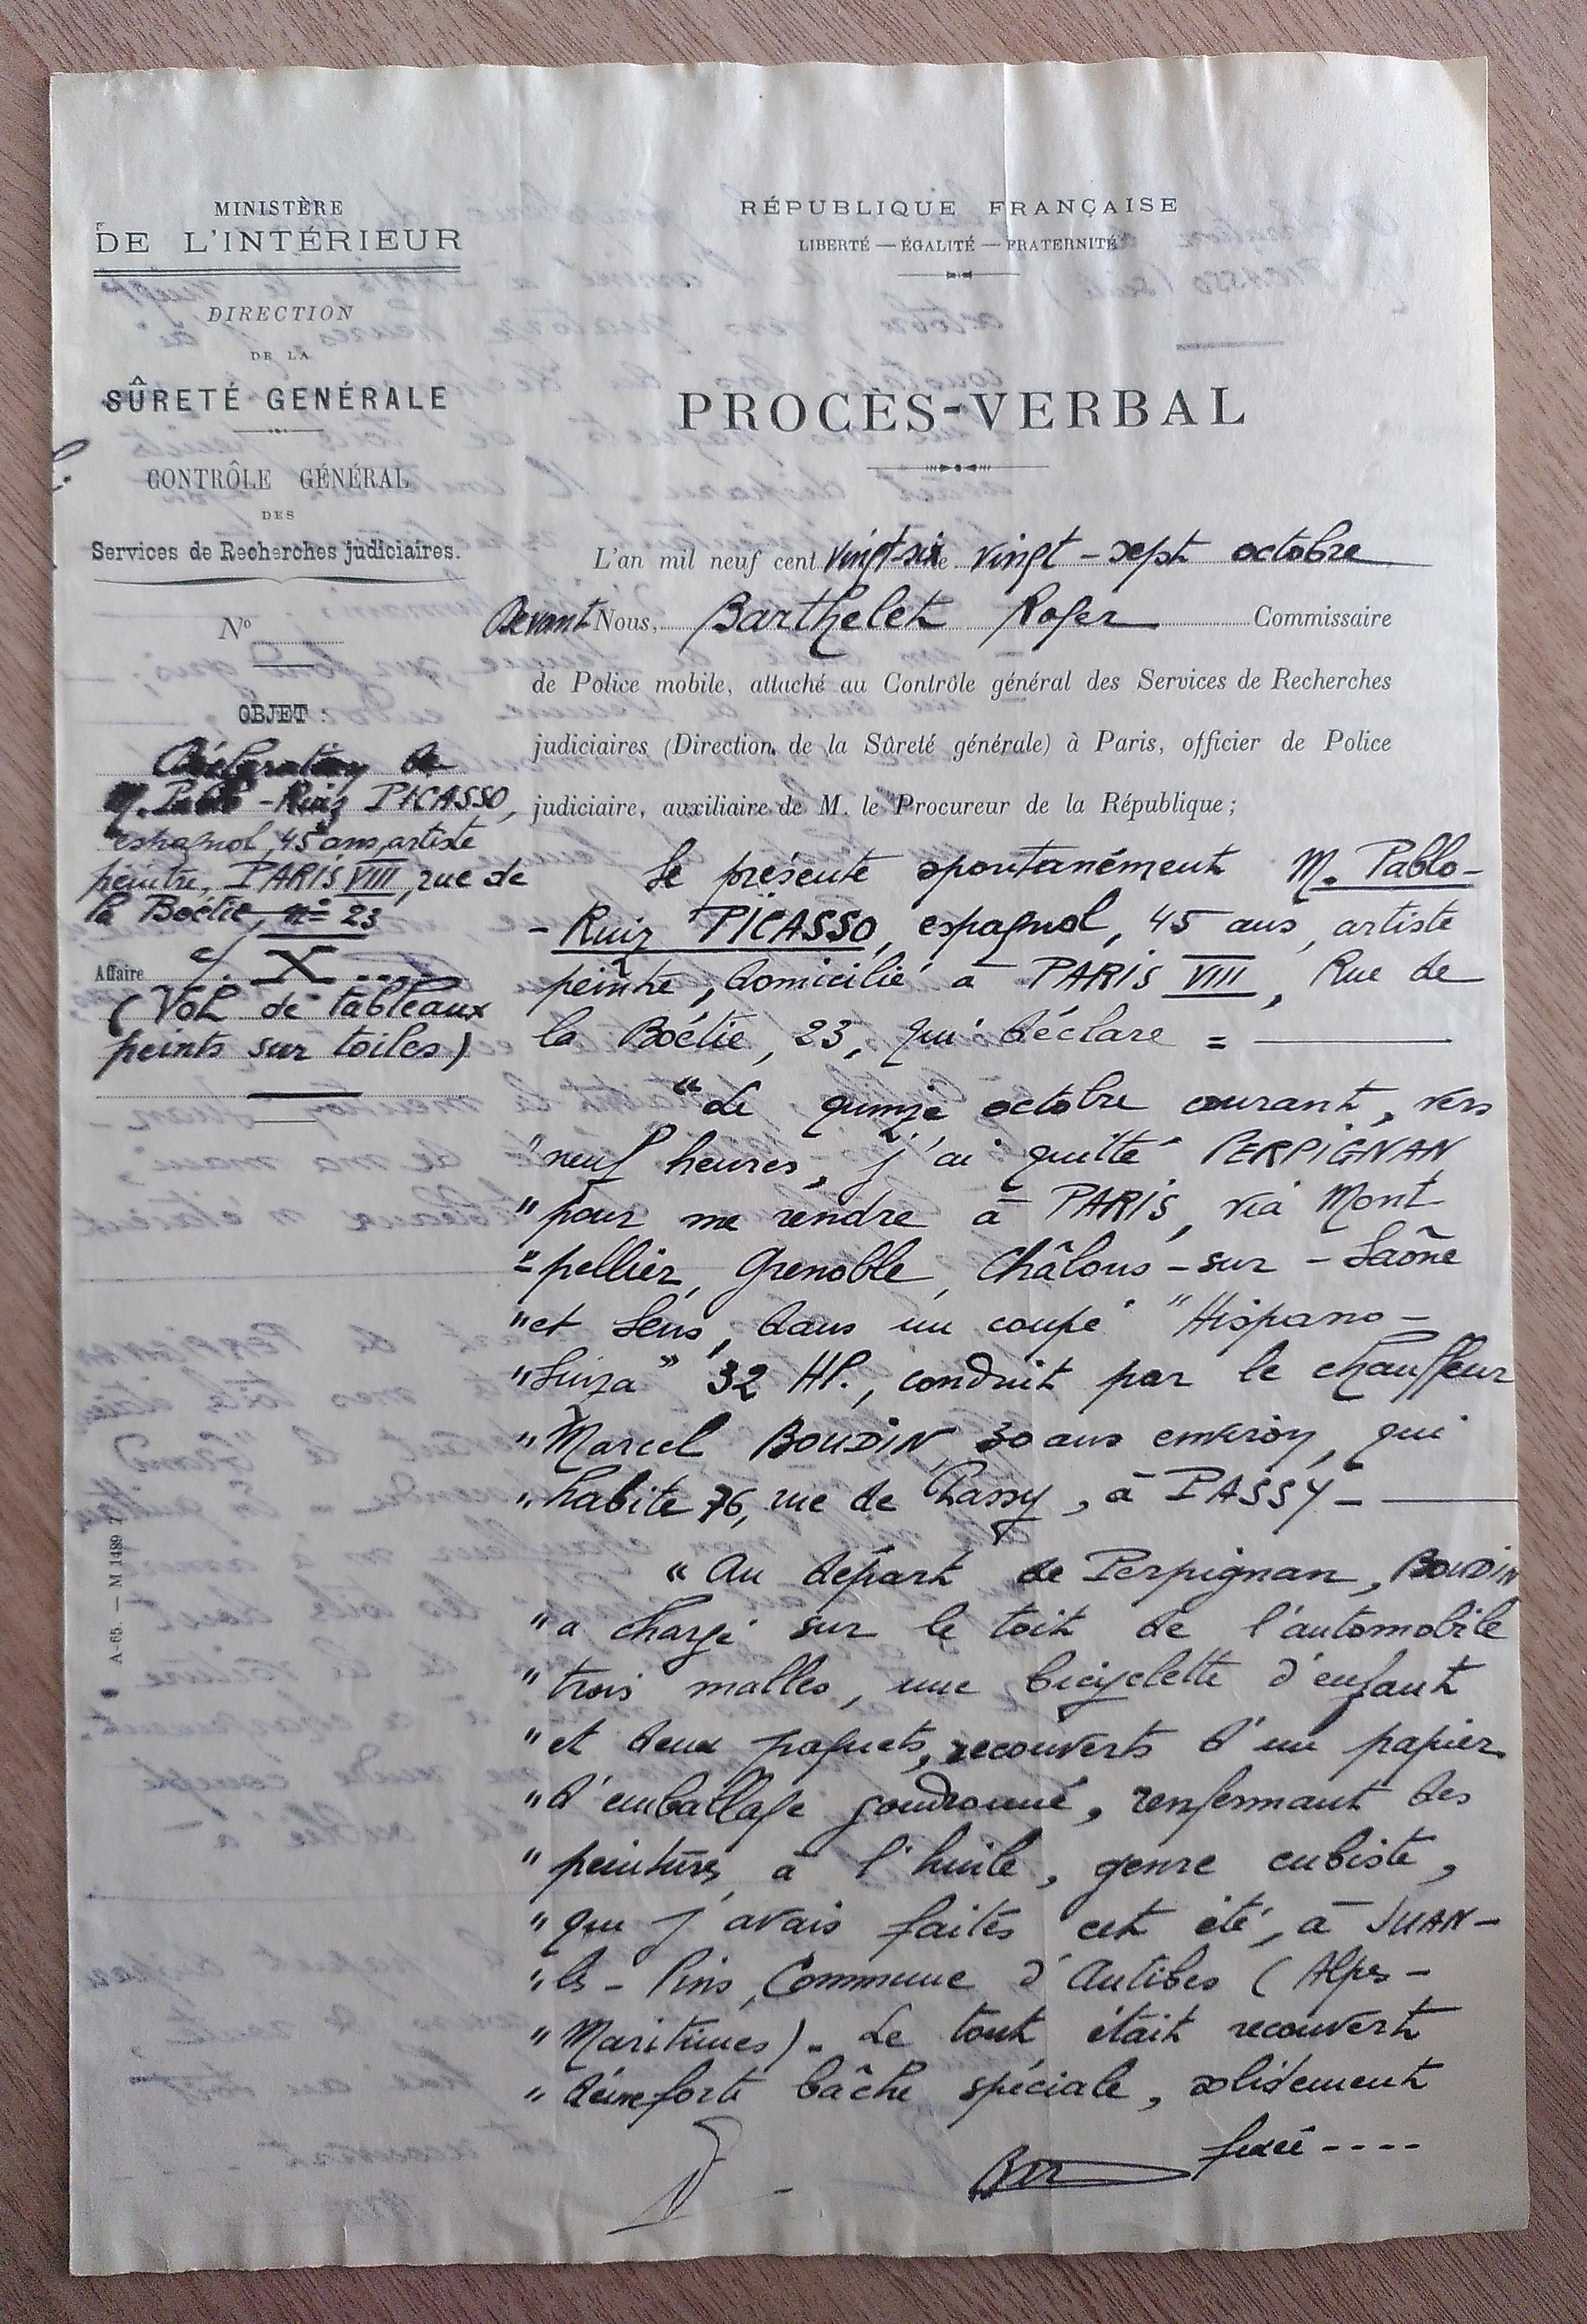 MINISTÈRE
DE L'INTÉRIEUR
DIRECTION
DE LA
SÛRETÉ GENÉRALE
CONTRÔLE GÉNÉRAL
DES
Services de Recherches judiciaires.
N°
OBJET :
Déclaration de
M. Pablo-Ruiz PICASSO,
espagnol, 45 ans, artiste
peintre, PARIS VIII, rue de
la Boétie, n° 23
Affaire c/. X....
(Vol de tableaux
peints sur toiles)
A-65. — M 1489
RÉPUBLIQUE FRANÇAISE
LIBERTÉ — ÉGALITÉ — FRATERNITÉ
PROCÈS-VERBAL
L'an mil neuf cent vingt-six vingt-sept octobre
Devant Nous, Barthelet Roger Commissaire
de Police mobile, attaché au Contrôle général des Services de Recherches
judiciaires (Direction de la Sûreté générale) à Paris, officier de Police
judiciaire, auxiliaire de M. le Procureur de la République ;
Se présente spontanément M. Pablo-
-Ruiz PICASSO, espagnol, 45 ans, artiste
peintre, domicilié à PARIS VIII, Rue de
la Boétie, 23, qui déclare =
"Le quinze octobre courant, vers
"neuf heures, j'ai quitté PERPIGNAN
"pour me rendre à PARIS, via Mont
"pellier, Grenoble, Châlons-sur-Saône
"et Sens, dans un coupé "Hispano-
"Suiza" 32 HP., conduit par le chauffeur
"Marcel BOUDIN, 30 ans environ, qui
"habite 76, rue de Chassy, à PASSY-
"Au départ de Perpignan, BOUDIN
"a chargé sur le toit de l'automobile
"trois malles, une bicyclette d'enfant
"et deux paquets, recouverts d'un papier
"d'emballage goudronné, renfermant des
"peintures à l'huile, genre cubiste,
"que j'avais faites cet été, à JUAN-
"les-Pins, Commune d'Antibes (Alpes-
"Maritimes). Le tout était recouvert
"d'une forte bâche spéciale, solidement
fixée----